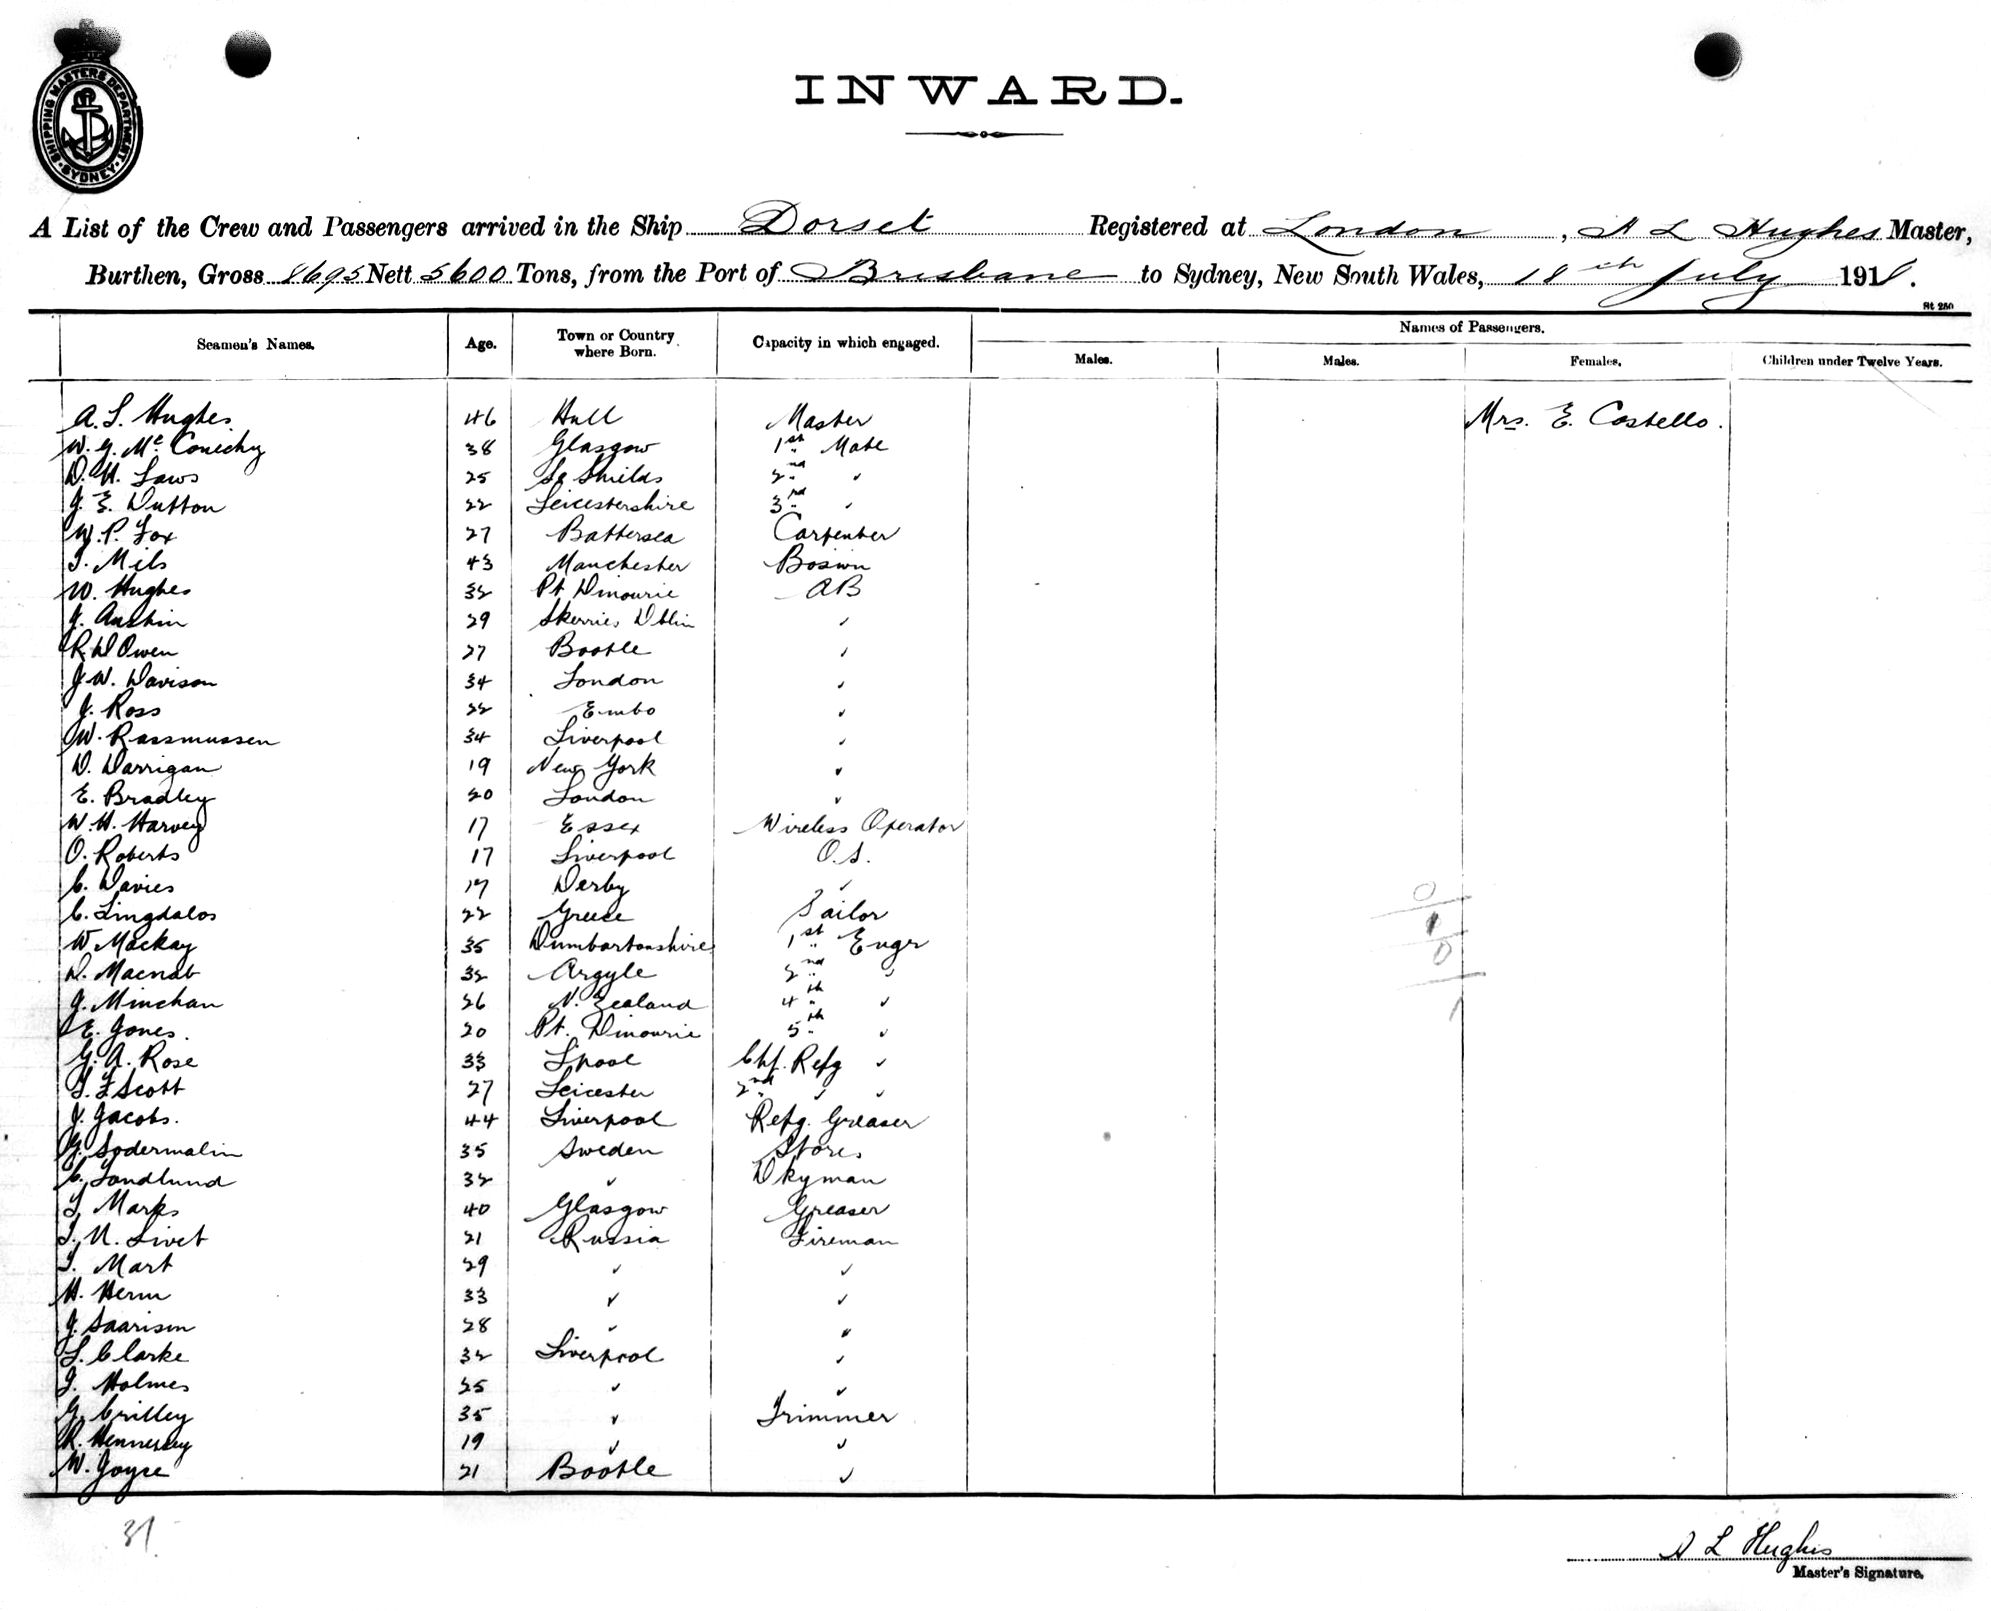 SHIPPING MASTERS DEPARTMENT · SYDNEY ·
INWARD.
A List of the Crew and Passengers arrived in the Ship Dorset Registered at London, A L Hughes Master,
Burthen, Gross 8695 Nett 5600 Tons, from the Port of Brisbane to Sydney, New South Wales, 18th July 1918.
St 250
Seamen's Names. Age. Town or Country where Born. Capacity in which engaged. Names of Passengers.
Males. Males. Females. Children under Twelve Years.
A. L. Hughes 46 Hull Master Mrs. E. Costello.
W. G. Mc Conechy 38 Glasgow 1st Mate
D. H. Laws 25 So Shields 2nd "
J. E. Dutton 22 Leicestershire 3rd "
W. P. Fox 27 Battersea Carpenter
T. Mils 43 Manchester Boswn
W. Hughes 32 Pt Dinowic AB
J. Austin 29 Skerries Dblin "
R. D Owen 27 Bootle "
J. W. Davison 34 London "
J. Ross 22 Embo "
W. Rassmussen 34 Liverpool "
D. Darrigan 19 New York "
E. Bradley 20 London "
W. H. Harvey 17 Essex Wireless Operator
O. Roberts 17 Liverpool O.S.
C. Davies 17 Derby "
C. Lingdalos 22 Greece Sailor
W Mackay 35 Dumbartonshire 1st Engr
D. Macnab 32 Argyle 2nd "
J. Minchan 26 N. Zealand 4th "
E. Jones. 20 Pt. Dinowic 5th "
G. A. Rose 33 L'pool Chf. Refg "
T. F Scott 27 Leicester 2nd " "
J. Jacobs. 44 Liverpool Refg. Greaser
G. Sodermalin 35 Sweden Stores
C. Sondlund 32 " Dkyman
T. Marks 40 Glasgow Greaser
T. N. Livet 21 Russia Fireman
T. Mart 29 " "
H. Herm 33 " "
J. Saarison 28 " "
L. Clarke 32 Liverpool "
J. Holmes 25 " "
G. Critley 35 " Trimmer
R. Hennessy 19 " "
W. Joyce 21 Bootle "
0
1
0
1
37
A L Hughes
Master's Signature.